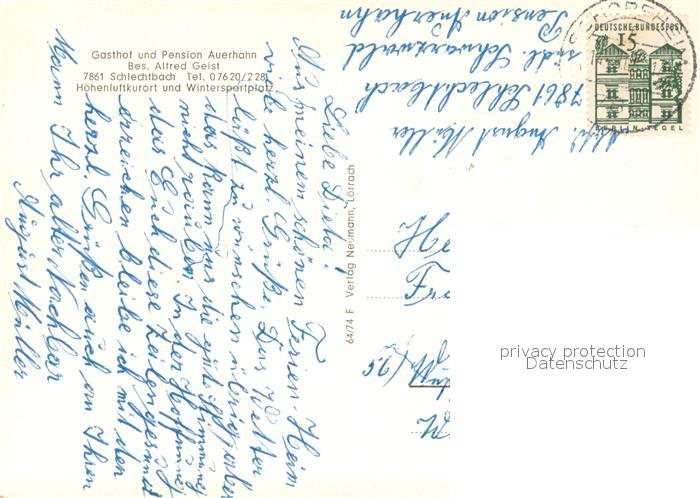 Gasthof und Pension Auerhahn
Bes. Alfred Geist
7861 Schlechtbach Tel. 07620/228
Höhenluftkurort und Wintersportplatz
Liebe Dieta!
Aus meinem schönen Ferien-Heim
viele herzl. Grüße. Das Wetter
läßt zu wünschen übrig, aber
das kann uns die gute Stimmung
nicht rauben. In der Hoffnung
das Euch diese Zeilen gesund
erreichen bleibe ich mit den
herzl. Grüßen auch an Ihren
Mann Ihr alter Nachbar
August Müller
64/74 F Verlag Neumann, Lörrach
Abs. August Müller
7861 Schlechtbach
südl. Schwarzwald
Pension Auerhahn
DEUTSCHE BUNDESPOST
15
BERLIN-TEGEL
H
Fr
privacy protection
Datenschutz